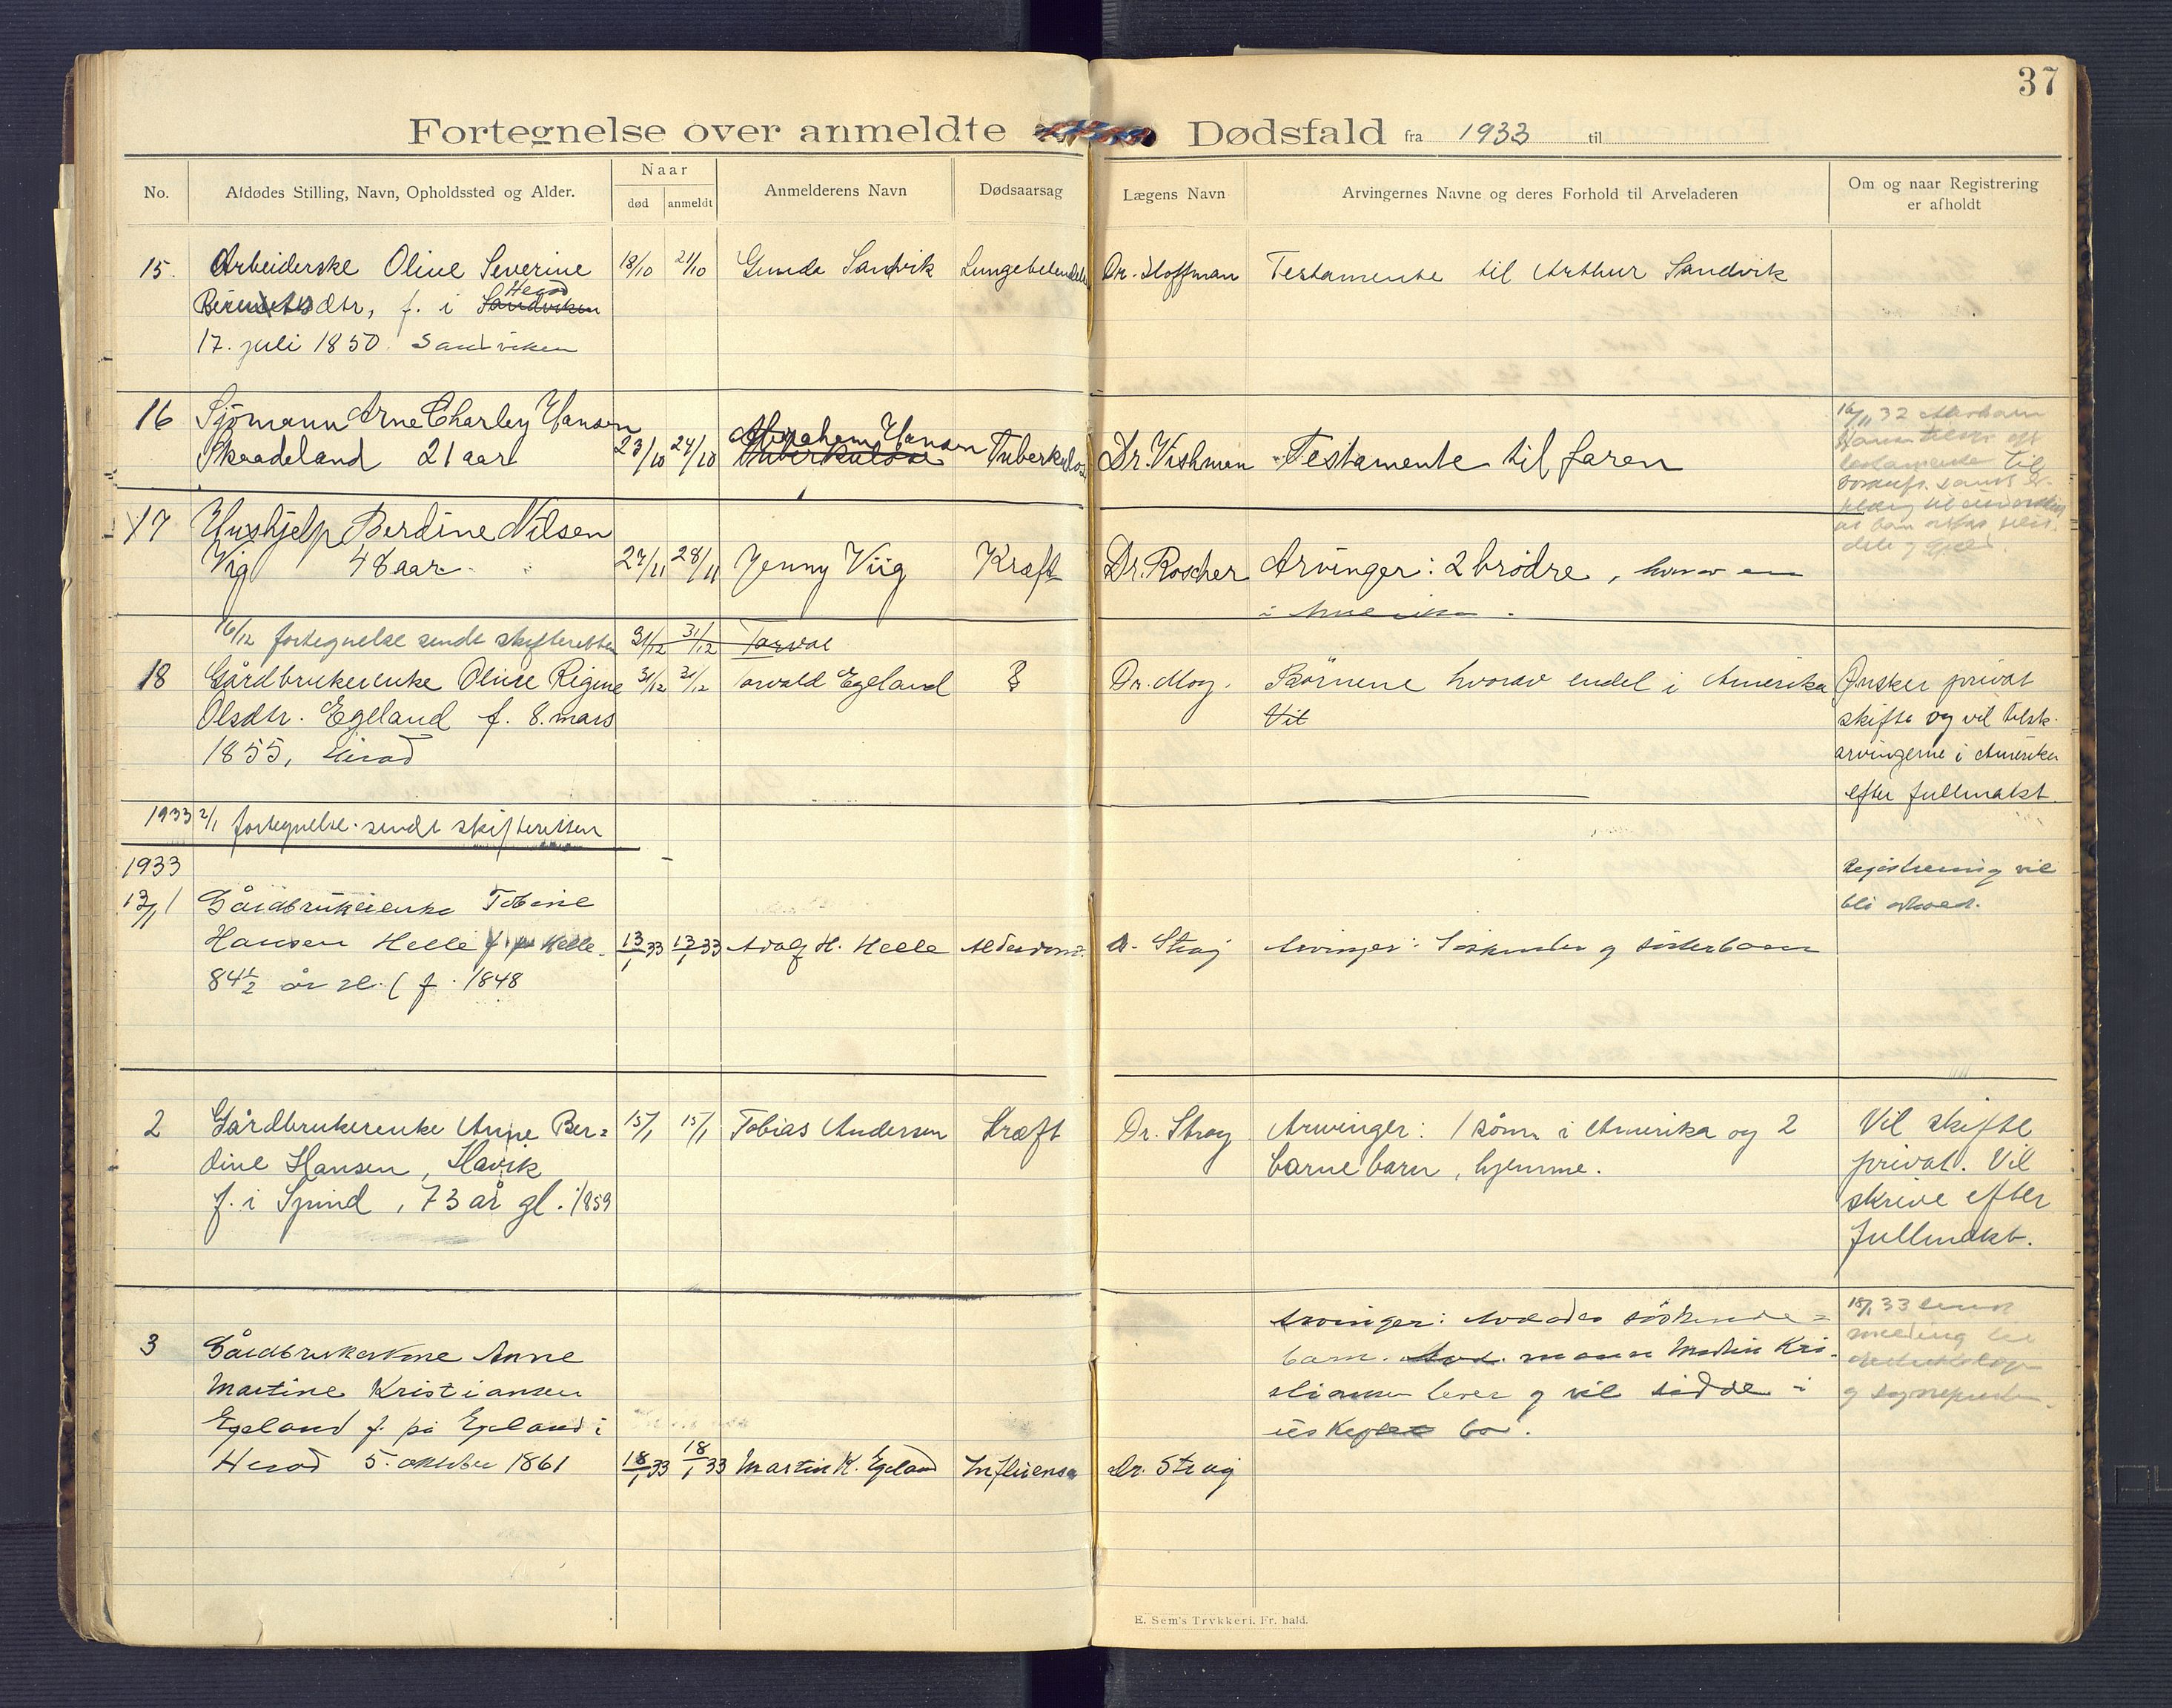 37
Fortegnelse over anmeldte Dødsfald fra 1933 til
No.
Afdødes Stilling, Navn, Opholdssted og Alder.
Naar
død
anmeldt
Anmelderens Navn
Dødsaarsag
Lægens Navn
Arvingernes Navne og deres Forhold til Arveladeren
Om og naar Registrering
er afholdt
15. Arbeiderske Oline Severine 18/10 21/10 Gunda Sandvik Dr. Hoffman Testamente til Arthur Sandvik
Herad
dtr, f. i Sandviken
17. juli 1850. Sandviken
16 Sjömann Arne Charley Hansen
Skaadeland 21 aar 23/10 24/10 Abraham Hansen Tuberkulose Dr. Vishman Testamente til faren
Tuberkulose
16/11 32
testamente til
17 Hushjelp Berdine Nilsen
Vig 48 aar 27/11 28/11 Jenny Viig Kræft Dr. Roscher Arvinger: 2 brödre, hvorav en
i Amerika.
16/12 fortegnelse sendt skifteretten 31/12 31/12 Torval
18 Gårdbrukerenke Oline Regine 31/12 31/12 Osvald Egeland ? Dr. Moy. Börnene hvorav endel i Amerika Önsker privat
Olsdtr. Egeland f. 8. mars Vil skifte og vil tilsk.
1855, Herad arvingerne i Amerika
efter fullmakt.
1933 2/1 fortegnelse sendt skifteretten
1933 Registrering vil
13/1 1 Gårdbrukerenke Tobine bli
Hansen Helle f. på Helle. 13/1 33 13/1 33 Adolf H. Helle Alderdom Dr. Stray Arvinger: Söskende og
84½ år gl. (f. 1848
2 Gårdbrukerenke Anne Ber= 15/1 15/1 Tobias Andersen Kræft Dr. Stray Arvinger: 1 sönn i Amerika og 2 Vil skifte
dine Hansen, Havik barnebarn, hjemme. privat. Vil
f. i Spind, 73 år gl. 1859 skrive efter
fullmakt.
Arvinger: Avdödes söskende=
18/1 33 sendt
3 Gårdbrukerkone Anne barn. Avd. mann Martin Kri- melding til
Martine Kristiansen stiansen lever og vil sidde i
Egeland f. på Egeland i uskiftet bo.
Herad 5. oktober 1861 18/1 33 18/1 33 Martin K. Egeland Influensa Dr. Stray
E. Sem's Trykkeri. Fr.hald.